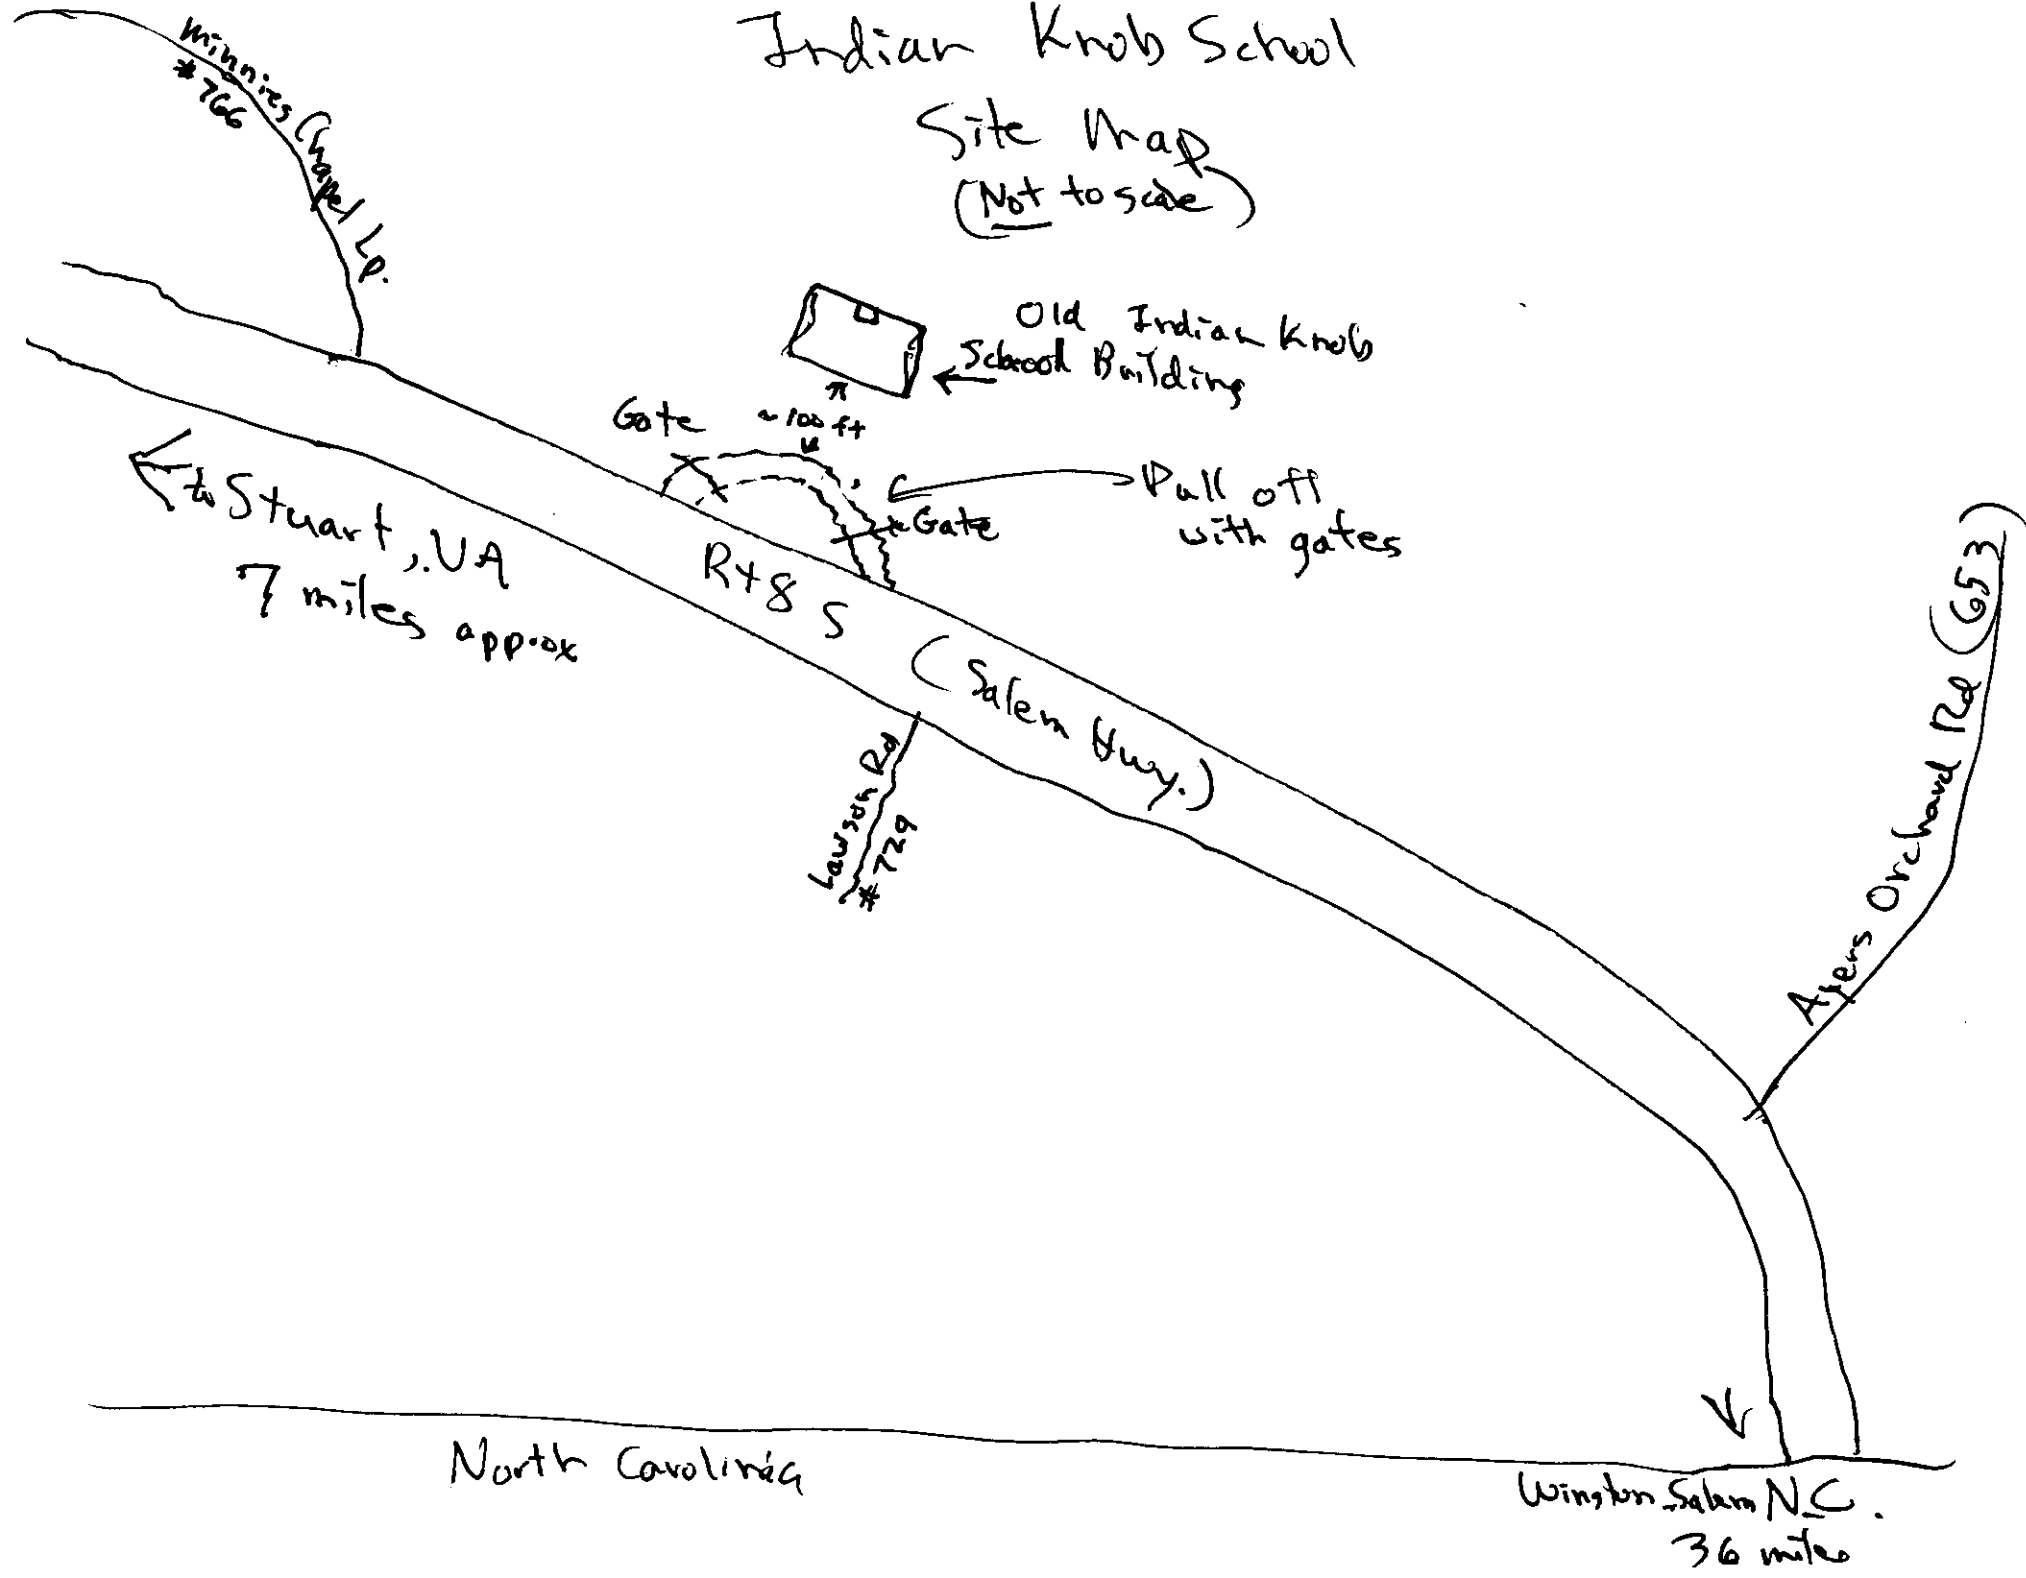 Indian Knob School
Site Map
(Not to scale)
Minnies Chapel Lp.
#766
Old Indian Knob
School Building
Gate
~100 ft
Pull off
with gates
Gate
to Stuart, VA
7 miles approx
Rt 8 S (Salem Hwy.)
Lawson Rd
#729
Ayers Orchard Rd (653)
North Carolina
Winston-Salem N.C.
36 miles